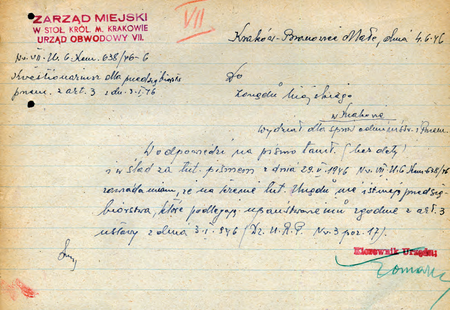 ZARZĄD MIEJSKI
W STOŁ. KRÓL. M. KRAKOWIE
URZĄD OBWODOWY VII.
VII
Kraków-Bronowice Małe, dnia 4.6.46
Nr. VII-Ut 6 Kem 638/46-6
Kwestionariusz dla przedsiębiorstw
przem. z art. 3 z dn. 3.I.46
Do
Zarządu Miejskiego
w Krakowie
wydział dla spraw administr. i Przem.
W odpowiedzi na pismo tamt. (bez daty)
i w ślad za tut. pismem z dnia 29.V.1946 Nr. VII-Ut 6 Kem 638/46
zawiadamiam, że na terenie tut. Urzędu nie istnieją przedsię-
biorstwa, które podlegają upaństwowieniu zgodnie z art. 3
ustawy z dnia 3.I.946 (Dz. U.R.P. Nr. 3 poz. 17).
Kierownik Urzędu: